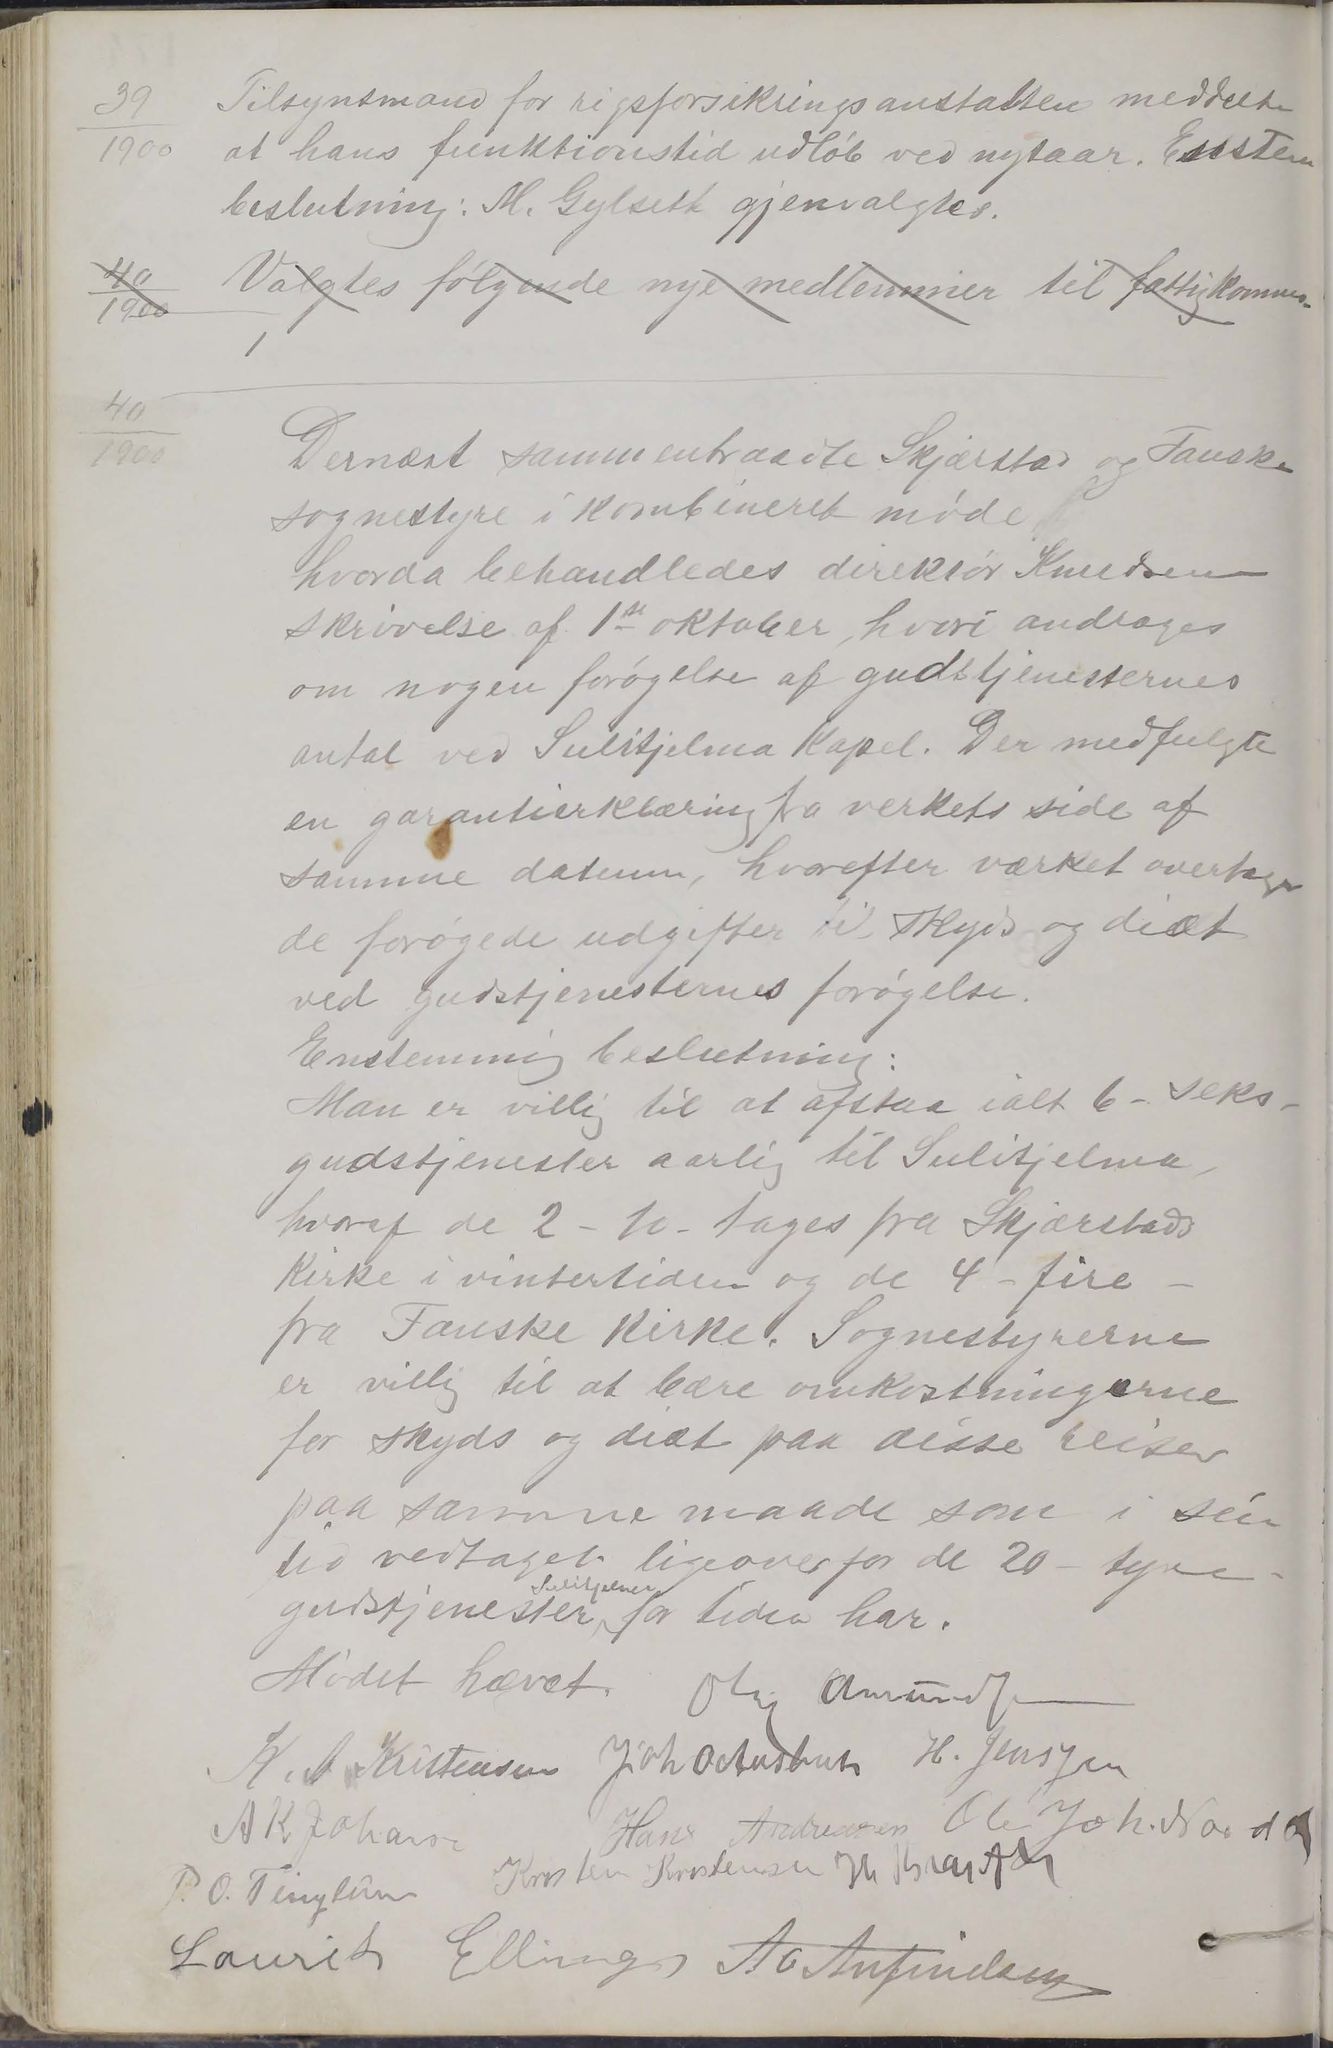 39
1900
Tilsynsmand for rigsforsikringsanstalten meddelte
at hans funktionstid udløb ved nytaar. Enstem
beslutning: M. Gylseth gjenvalgtes.
40
1900
Valgtes følgende nye medlemmer til fattigkommis-
1
40
1900
Dernæst sammentraadte Skjærstad og Fauske
sognestyre i kombineret møde
hvorda behandledes direktør Knudsen
skrivelse af 1ste oktober, hvori andrages
om nogen forøgelse af gudstjenesternes
antal ved Sulitjelma Kapel. Der medfulgte
en garantierklæring fra verkets side af
samme datum, hvorefter værket overtager
de forøgede udgifter til skyds og diæt
ved gudstjenesternes forøgelse.
Enstemmig beslutning:
Man er villig til at afstaa ialt 6 - seks -
gudstjenester aarlig til Sulitjelma,
hvoraf de 2 - to - tages fra Skjærstads
Kirke i vintertiden og de 4 - fire -
fra Fauske Kirke. Sognestyrerne
er villig til at bære omkostningerne
for skyds og diæt paa disse reiser
paa samme maade som i sin
tid vedtaget ligeoverfor de 20 - tyve -
gudstjenester Sulitjelma for tiden har.
Mødet hævet. Olaf Amundsen
K. A Kristensen Joh H. Jensen
A K Johans Hans Andreassen Ole Joh. Nordal
P. O. Tinglum Kristen Kristensen
Laurits Ellings A O Anfindsen